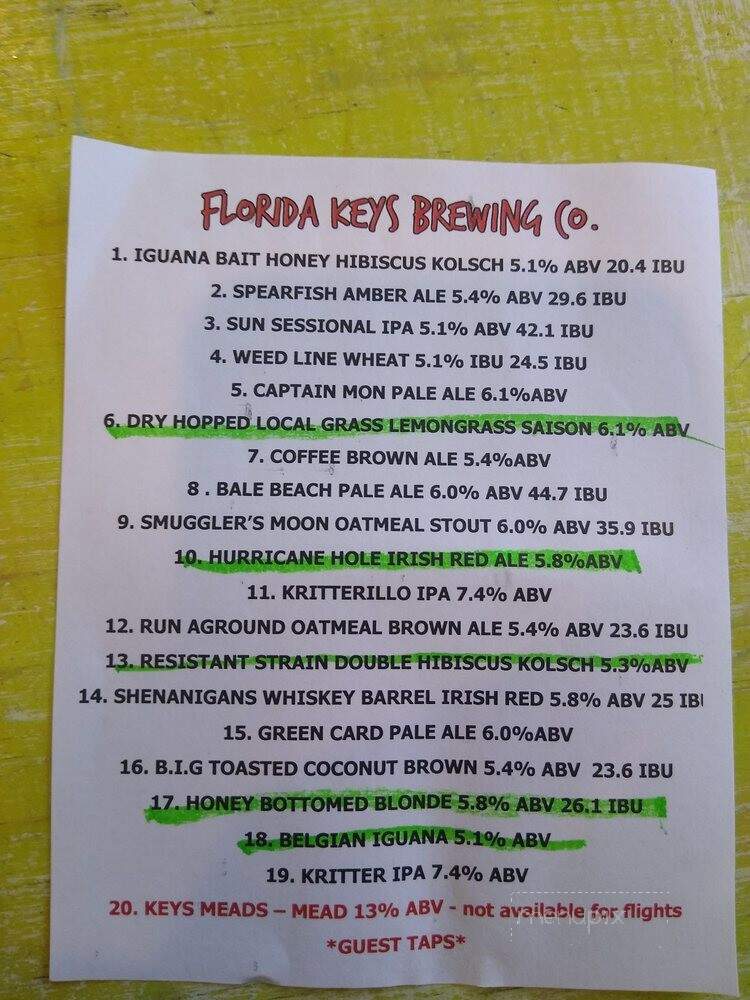 FLORIDA KEYS BREWING CO.
1. IGUANA BAIT HONEY HIBISCUS KOLSCH 5.1% ABV 20.4 IBU
2. SPEARFISH AMBER ALE 5.4% ABV 29.6 IBU
3. SUN SESSIONAL IPA 5.1% ABV 42.1 IBU
4. WEED LINE WHEAT 5.1% IBU 24.5 IBU
5. CAPTAIN MON PALE ALE 6.1%ABV
6. DRY HOPPED LOCAL GRASS LEMONGRASS SAISON 6.1% ABV
7. COFFEE BROWN ALE 5.4%ABV
8 . BALE BEACH PALE ALE 6.0% ABV 44.7 IBU
9. SMUGGLER'S MOON OATMEAL STOUT 6.0% ABV 35.9 IBU
10. HURRICANE HOLE IRISH RED ALE 5.8%ABV
11. KRITTERILLO IPA 7.4% ABV
12. RUN AGROUND OATMEAL BROWN ALE 5.4% ABV 23.6 IBU
13. RESISTANT STRAIN DOUBLE HIBISCUS KOLSCH 5.3%ABV
14. SHENANIGANS WHISKEY BARREL IRISH RED 5.8% ABV 25 IB
15. GREEN CARD PALE ALE 6.0%ABV
16. B.I.G TOASTED COCONUT BROWN 5.4% ABV 23.6 IBU
17. HONEY BOTTOMED BLONDE 5.8% ABV 26.1 IBU
18. BELGIAN IGUANA 5.1% ABV
19. KRITTER IPA 7.4% ABV
20. KEYS MEADS – MEAD 13% ABV - not available for flights
menupix
*GUEST TAPS*